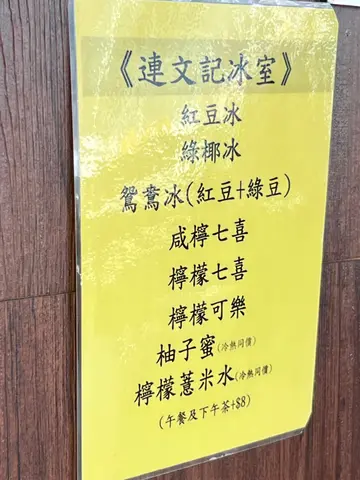 《連文記冰室》
紅豆冰
綠椰冰
鴛鴦冰(紅豆+綠豆)
咸檸七喜
檸檬七喜
檸檬可樂
柚子蜜(冷熱同價)
檸檬薏米水(冷熱同價)
(午餐及下午茶+$8)